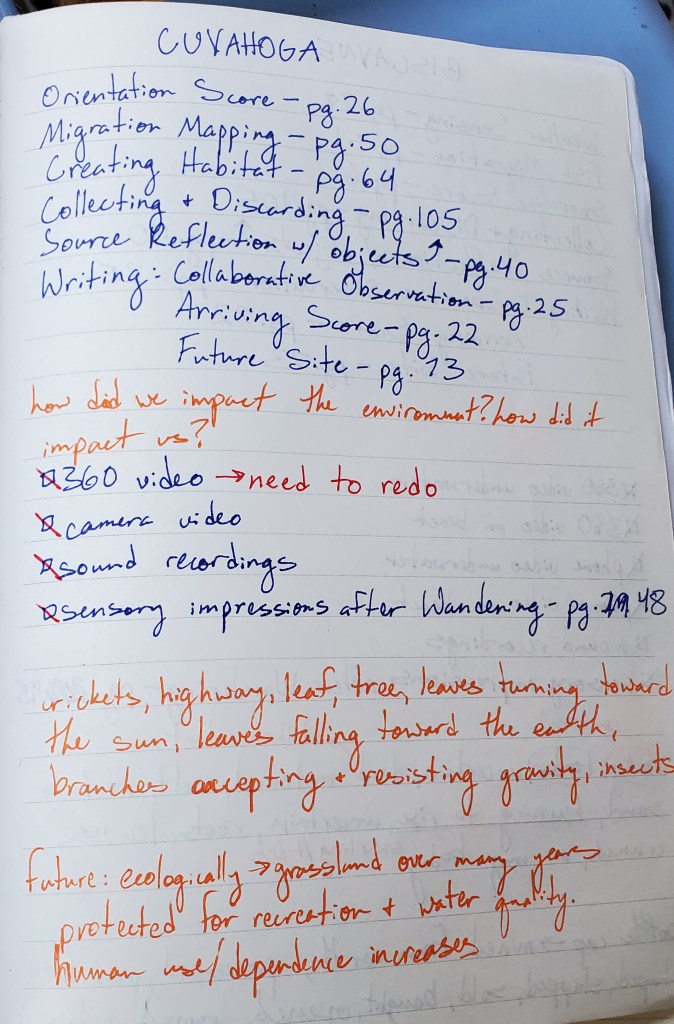 CUYAHOGA
Orientation Score - pg. 26
Migration Mapping - pg. 50
Creating Habitat - pg. 64
Collecting + Discarding - pg. 105
Source Reflection w/ objects ↑ - pg. 40
Writing: Collaborative Observation - pg. 25
Arriving Score - pg. 22
Future Site - pg. 73
how did we impact the enviroment? how did it
impact us?
360 video → need to redo
camera video
sound recordings
sensory impressions after Wandering - pg. 48
crickets, highway, leaf, tree, leaves turning toward
the sun, leaves falling toward the earth,
branches accepting + resisting gravity, insects
future: ecologically → grassland over many years
protected for recreation + water quality.
human use/dependence increases